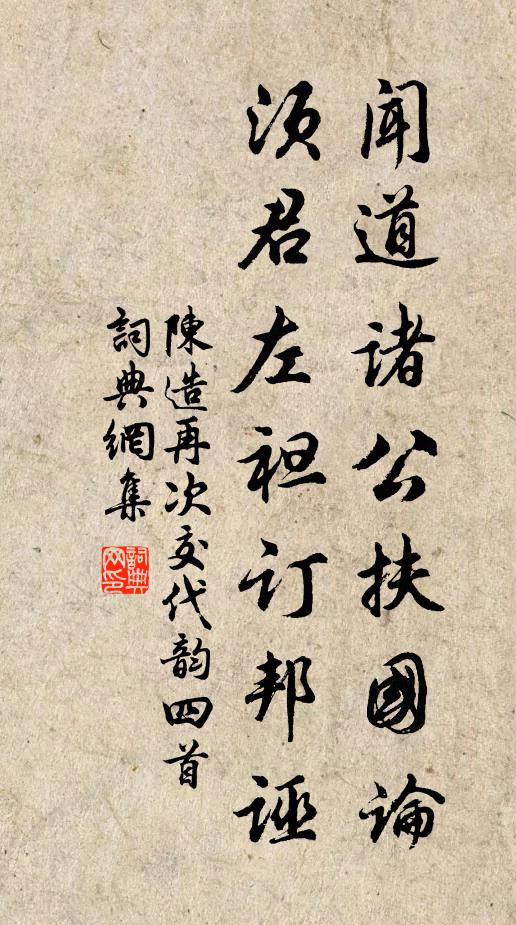 闻道诸公扶國論
须君左袒订邦誣
陳造再次交代韵四首
詞典網集
詞典網印